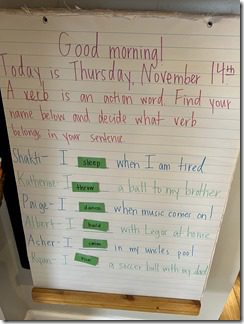 Good morning!
Today is Thursday, November 14th.
A verb is an action word. Find your
name below and decide what verb
belongs in your sentence.
Shakti- I sleep when I am tired
Katherine- I throw a ball to my brother.
Paige- I dance when music comes on!
Albert- I build with Legos at home.
Asher- I swim in my uncles pool
Ryan- I run a soccer ball with my dad.